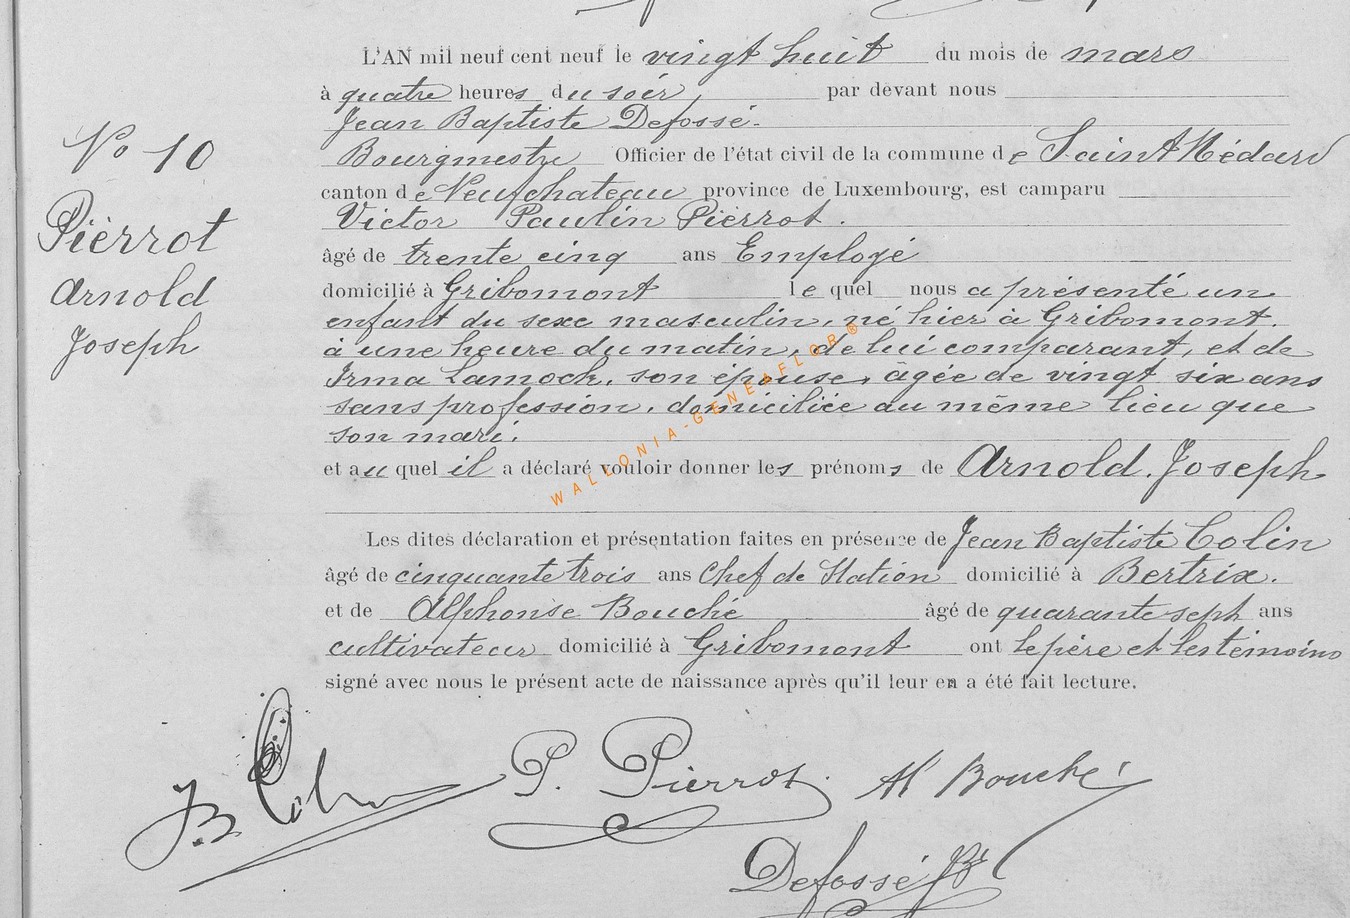 L'AN mil neuf cent neuf le vingt huit du mois de mars
à quatre heures du soir, par devant nous
Jean Baptiste Defossé.
Bourgmestre Officier de l'état civil de la commune de Saint Médard
canton de Neufchateau province de Luxembourg, est camparu
Victor Paulin Pierrot.
âgé de trente cinq ans Employé
domicilié à Gribomont lequel nous a présenté un
enfant du sexe masculin, né hier à Gribomont.
à une heure du matin, de lui comparant, et de
Irma Lamock, son épouse, âgée de vingt six ans
sans profession, domiciliée au même lieu que
son mari.
et auquel il a déclaré vouloir donner les prénoms de Arnold Joseph
Les dites déclaration et présentation faites en présence de Jean Baptiste Colin
âgé de cinquante trois ans Chef de Station domicilié à Bertrix.
et de Alphonse Bouché âgé de quarante sept ans
cultivateur domicilié à Gribomont ont le père et les témoins
signé avec nous le présent acte de naissance après qu'il leur en a été fait lecture.
No 10
Pierrot
Arnold
Joseph
JB Colin P. Pierrot Al Bouché
Defossé JB
WALLONIA-GENEAFLOR®